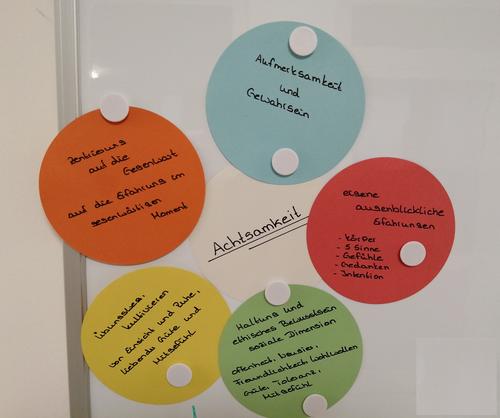 Aufmerksamkeit
und
Gewahrsein
Zentrierung
auf die
Gegenwart
auf die Erfahrung im
gegenwärtigen
Moment
Achtsamkeit
eigene
augenblickliche
Erfahrungen
- Körper
- 5 Sinne
- Gefühle
- Gedanken
- Intention
Übungsweg,
kultivieren
von Einsicht und Ruhe,
liebende Güte und
Mitgefühl
Haltung und
ethisches Bewusstsein
soziale Dimension
Offenheit,
Freundlichkeit, Wohlwollen
Güte, Toleranz,
Mitgefühl